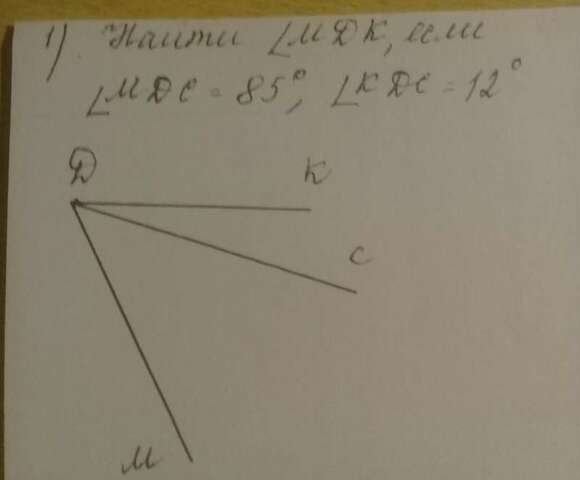 1) Найти ∠МДК, если
∠МДС = 85°, ∠КДС = 12°
Д
К
С
М